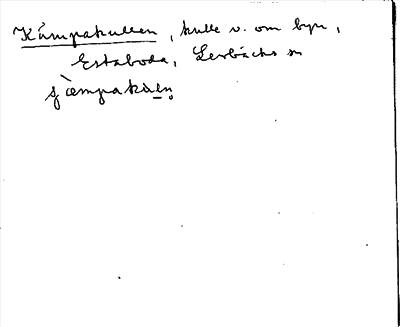 Kämpakullen, kulle v. om byn,
Estaboda, Lerbäcks sn